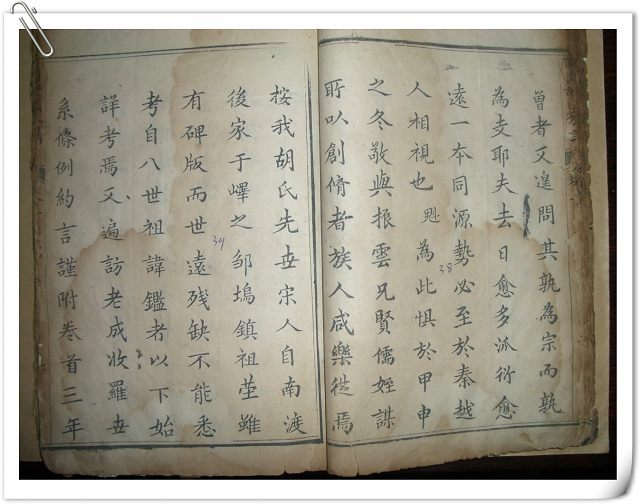 曽者又遑問其孰為宗而孰
為支耶夫去日愈多派衍愈
遠一本同源勢必至於秦越
人相視也魁為此惧於甲申
之冬敬與振雲兄賢儒姪謀
所以創脩者族人咸樂従焉
按我胡氏先世宋人自南渡
後家于嶧之邹塢鎮祖茔雖
有碑版而世遠残缺不能悉
考自八世祖諱鑑者以下始
詳考焉又遍訪老成收羅世
系條例約言謹附巻首三年
38
39